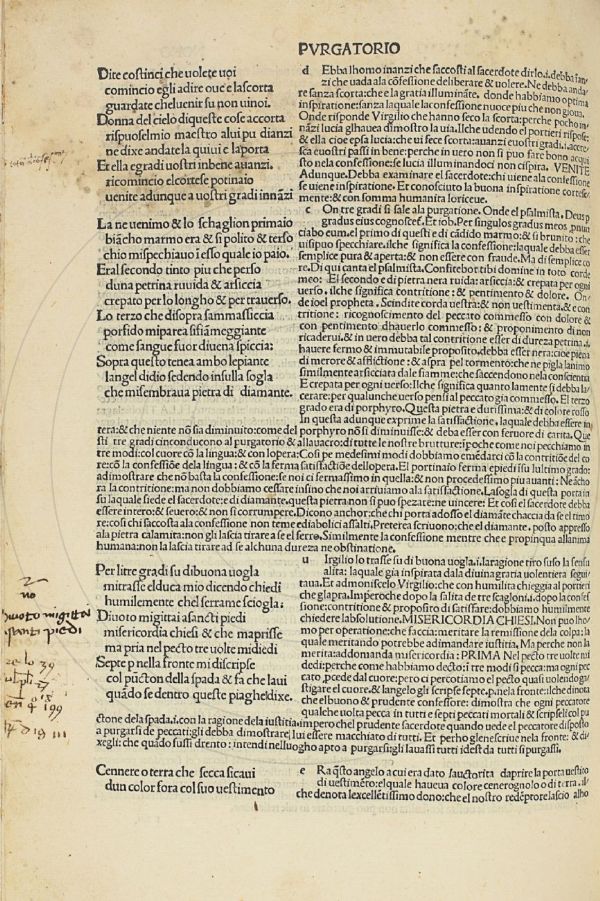 PVRGATORIO
Dite costinci che uolete uoi
comincio egli adire oue e lascorta
guardate cheluenir su non uinoi.
Donna del cielo diqueste cose accorta
rispuoselmio maestro alui pu dianzi
ne dixe andate la quiui e laporta
Et ella egradi uostri inbene auanzi.
ricomincio elcortese potinaio
uenite adunque a uostri gradi innāzi
La ne uenimo & lo schaglion primaio
biācho marmo era & si polito & terso
chio mispechiauo i esso quale io paio.
Eral secondo tinto piu che perso
duna petrina ruuida & arsiccia
crepato per lo longho & per trauerso.
Lo terzo che disopra sammassiccia
porfido miparea si fiāmeggiante
come sangue fuor diuena spiccia:
Sopra questo tenea ambo lepiante
langel didio sedendo insulla sogla
che misembraua pietra di diamante.
d Ebba lhomo inanzi che saccosti al sacerdote dirlo.i.debba
zi che uada alla cōfessione deliberare & uolere. Ne debba anda
re sanza scorta: che e la gratia illumināte. donde habbiamo optima
inspiratione: sanza laquale la confessione nuoce piu che non gioua.
Onde risponde Virgilio che hanno seco la scorta: perche pocho in
nāzi lucia glhauea dimostro la uia. Ilche udendo el portieri rispose:
& ella cioe epsa lucia: che ui fece scorta: auanzi euostri gradi.i.accre
sca euostri passi in bene: perche in uero non si puo fare bono acqui
sto nela confessione: se lucia illuminandoci non cispira. VENITE
Adunque. Debba examinare el sacerdote: chi uiene ala confessione
se uiene inspiratione. Et conosciuto la buona inspiratione cortese
mente: & con somma humanita loriceue.
c On tre gradi si sale ala purgatione. Onde el psalmista. Deus
gradus eius cognoscet. Et iob. Per singulos gradus meos
ciabo eum. el primo di questi e di cādido marmo: & si brunito: che
uisipuo specchiare. ilche significa la confessione: laquale debba esser
semplice pura & aperta: & non essere con fraude. Ma di semplice co
re. Di qui canta el psalmista. Confitebor tibi domine in toto corde
meo: El secondo e di pietra nera ruida: arsiccia: & crepata per ogni
uerso. ilche significa contritione: & pentimento & dolore. On
de ioel propheta. Scindite corda uestra: & non uestimenta. & e con
tritione: ricognoscimento del peccato commesso con dolore &
con pentimento dhauerlo commesso: & proponimento di non
ricaderui. & in uero debba tal contritione esser di durezza petrina.i.
hauere fermo & immutabile proposito. debba esser nera: cioe piena
di merore & afflictione & aspra pel tormento: che ne pigla lanimo
similmente arsicciata dale fiamme: che saccendono nela conscientia
E crepata per ogni uerso: Ilche significa quanto lamente si debba la
cerare: per qualunche uerso pensi al peccato gia commesso. El terzo
grado era di porphyro. Questa pietra e durissima: & di colore rosso
In questa adunque exprime la satisfactione. laquale debba essere in
tera: & che niente nō sia diminuito: come del porphyro nō si diminuisce: & deba esser con feruore di carita. Que
sti tre gradi cinconducono al purgatorio & allauacro: di tutte le nostre brutture: ipoche come noi pecchiamo in
tre modi: col cuore cō la lingua: & con lopera: Cosi pe medesimi modi dobbiamo emēdarci cō la contritiōe del co
re: cō la confessiōe dela lingua: & cō la ferma satisfactiōe dellopera. El portinaio ferma epiedi isu lultimo grado:
adimostrare che nō basta la confessione: se noi ci fermassimo in quella: & non procedessimo piu auanti: Ne ācho
ra la contritione: ma non dobbiamo cessare insino che noi arriuiamo ala satisfactione. La sogla di questa porta in
su laquale siede el sacerdote: e di diamante. questa pietra non si puo spezare: ne uincere: Et cosi el sacerdote debba
essere intero: & seuero: & non si corrumpere. Dicono anchor: che chi porta adosso el diamāte chaccia da se el timo
re: cosi chi saccosta ala confessione non teme ediabolici assalti. Preterea scriuono: che el diamante. posto appresso
ala pietra calamita: non gli lascia tirare a se el ferro. Similmente la confessione mentre che e propinqua allanima
humana: non la lascia tirare ad se alchuna dureza ne obstinatione.
Per li tre gradi su dibuona uogla
mi trasse elduca mio dicendo chiedi
humilemente chel serrame sciogla:
Diuoto migittai asancti piedi
misericordia chiesi & che maprisse
ma pria nel pecto tre uolte midiedi
Septe p nella fronte mi discripse
col pūcton della spada & fa che laui
quādo se dentro queste piaghe dixe.
u Irgilio lo trasse su di buona uogla.i.la ragione tiro suso la sensu
alita: laquale gia inspirata dala diuina gratia uolentiera seguí
taua. Et admoniscelo Virgilio: che con humilita chieggia al portieri
che glapra. Imperoche dopo la salita de tre scaglioni.i.dopo la confes
sione: contritione & proposito di satisfare: dobbiamo humilmente
chiedere labsolutione. MISERICORDIA CHIESI. Non puo lho
mo per operatione: che faccia: meritare la remissione dela colpa: la
quale meritando potrebbe adimandare iustitia. Ma perche non la
merita: addomanda misericordia: PRIMA Nel pecto tre uolte mi
diedi: perche come habbiamo decto: i tre modi si pecca: ma ogni pec
cato, pcede dal cuore: pero ci percotiamo el pecto quasi uolendo ga
stigare el cuore. & langelo gli scripse septe.p.nela fronte: ilche dinota
che el buono & prudente confessore: dimostra che ogni peccatore
qualche uolta pecca in tutti e septi peccati mortali & scripseli col pū
ctone dela spada.i.con la ragione dela iustitia. impero chel prudente sacerdote quando uede el peccatore disposto
a purgarsi de peccati: gli debba dimostrare lui essere macchiato di tutti. Et perho glene scriue nela fronte: & di
xegli: che quādo fussi drento: intendi nel luogho apto a purgarsi: gli lauassi tutti idest da tutti si purgassi.
Cennere o terra che secca sicaui
dun color fora col suo uestimento
e Ra q̄sto angelo a cui era dato lauctorita daprire la porta uestito
di uestimēto: elquale haueua colore cenerognolo o di terra. il
che denota lexcellētissimo dono: che el nostro redēptore lascio alho
no
piedi